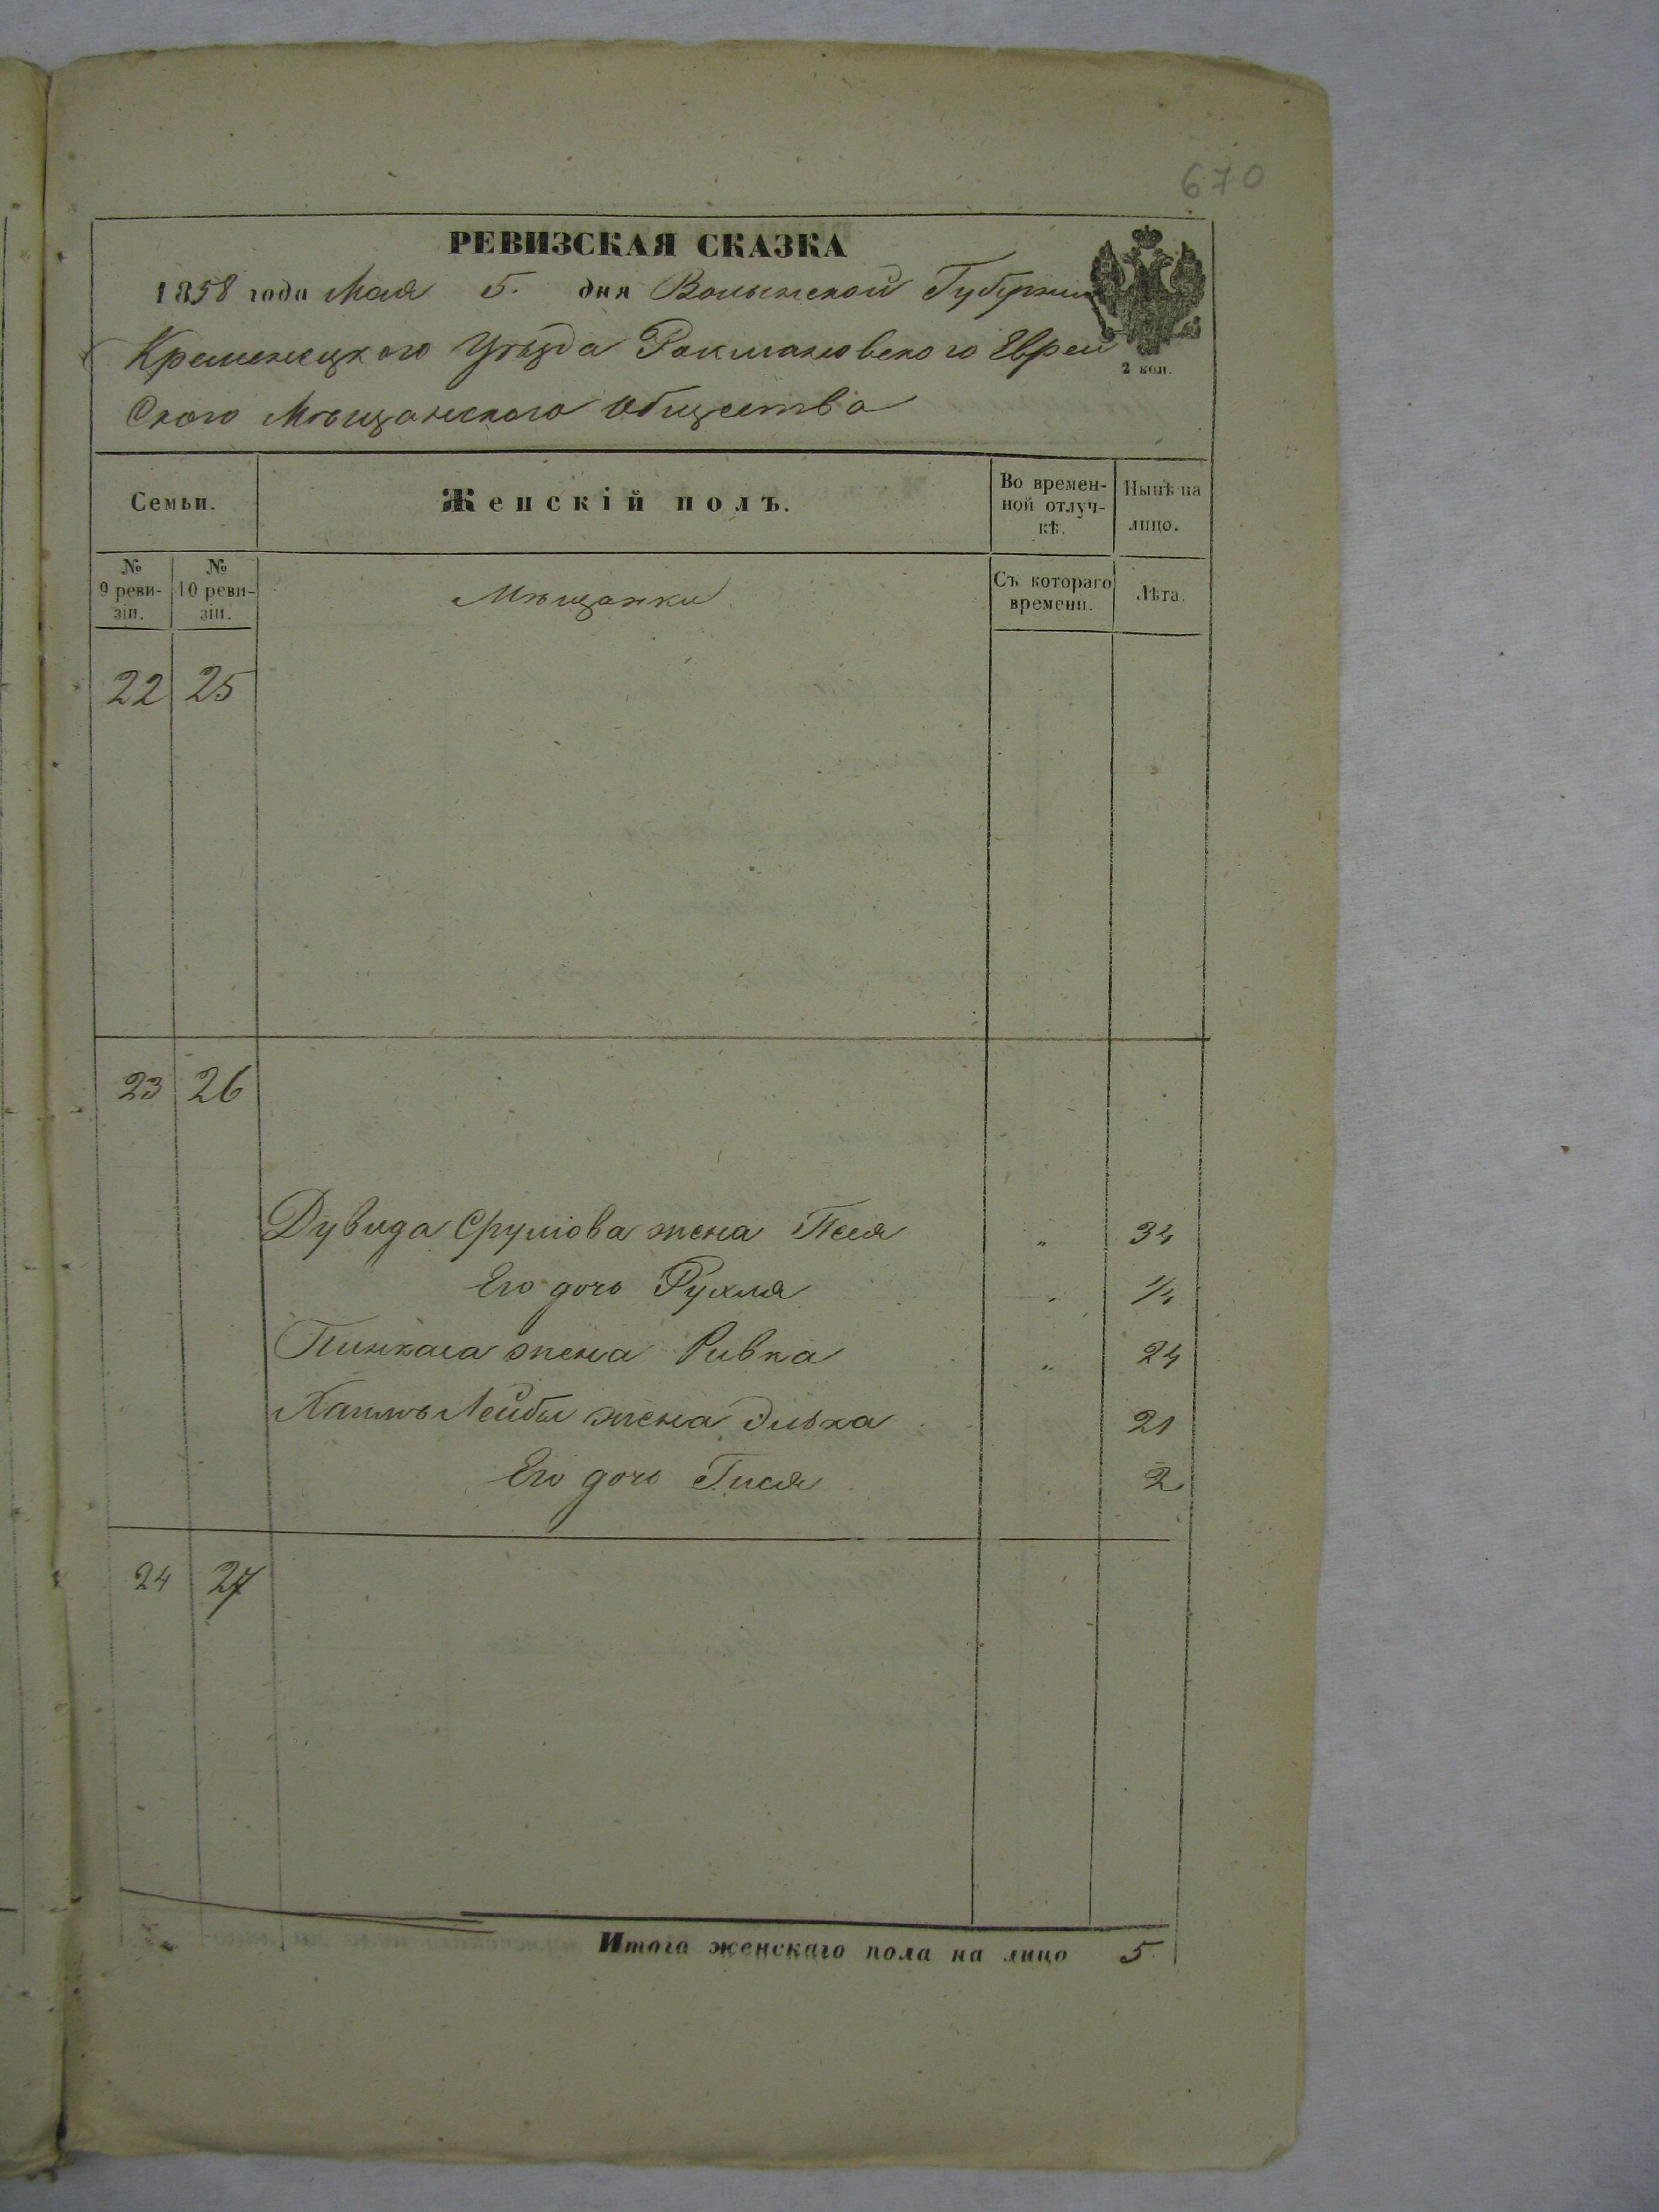 670
РЕВИЗСКАЯ СКАЗКА
1858 года Мая 5. дня Волынской Губернии
Кременецкого Уѣзда Рахмановского Еврей
Ского Мѣщанского Общества
2 коп.
Семьи.
Женскій полъ.
Во времен-
ной отлуч-
кѣ.
Нынѣ на
лицо.
№
9 реви-
зіи.
№
10 реви-
зіи.
Мѣщанки
Съ котораго
времени.
Лѣта.
22 25
23 26
Дувида Срулiова жена Песя " 34
Его дочь Рухля " 1/4
Пинкаса жена Ривка " 24
Хаимъ Лейбы жена Элька 21
Его дочь Гися 2
24 27
Итого женскаго пола на лицо 5.